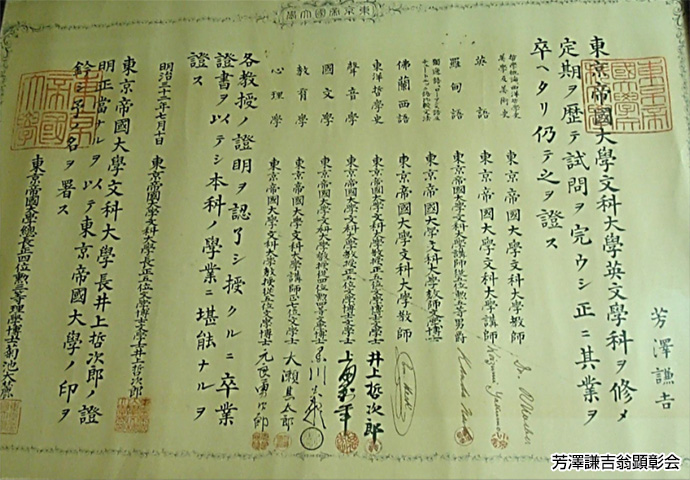 東京帝國大學
芳澤謙吉
東京帝國大學文科大學英文學科ヲ修メ
定期ヲ歴テ試問ヲ完ウシ正ニ其業ヲ
卒ヘタリ仍テ之ヲ證ス
哲學概論西洋哲學史
美學及美術史
東京帝國大學文科大學教師
英語 東京帝國大學文科大學講師 Koizumi Yakumo
羅甸語 東京帝國大學文科大學講師
東京帝國大學文科大學教師文學博士
佛蘭西語 東京帝國大學文科大學教師
東洋哲學史 東京帝國大學文科大學教授 文學博士 井上哲次郎
聲音學 東京帝國大學文科大學教授 上田萬年
國文學 東京帝國大學文科大學教授
教育學 東京帝國大學文科大學講師 大瀬甚太郎
心理學 東京帝國大學文科大學教授 元良勇次郎
各教授ノ證明ヲ認了シ授クルニ卒業
證書ヲ以テシ本科ノ學業ニ堪能ナルヲ
證ス
明治三十二年七月十日
東京帝國大學文科大學長 文學博士 井上哲次郎
東京帝國大學文科大學長井上哲次郎ノ證
明正當ナルヲ以テ東京帝國大學ノ印ヲ
鈐シ予ノ名ヲ署ス
東京帝國大學總長正四位勲三等理學博士菊池大麓
芳澤謙吉翁顕彰会